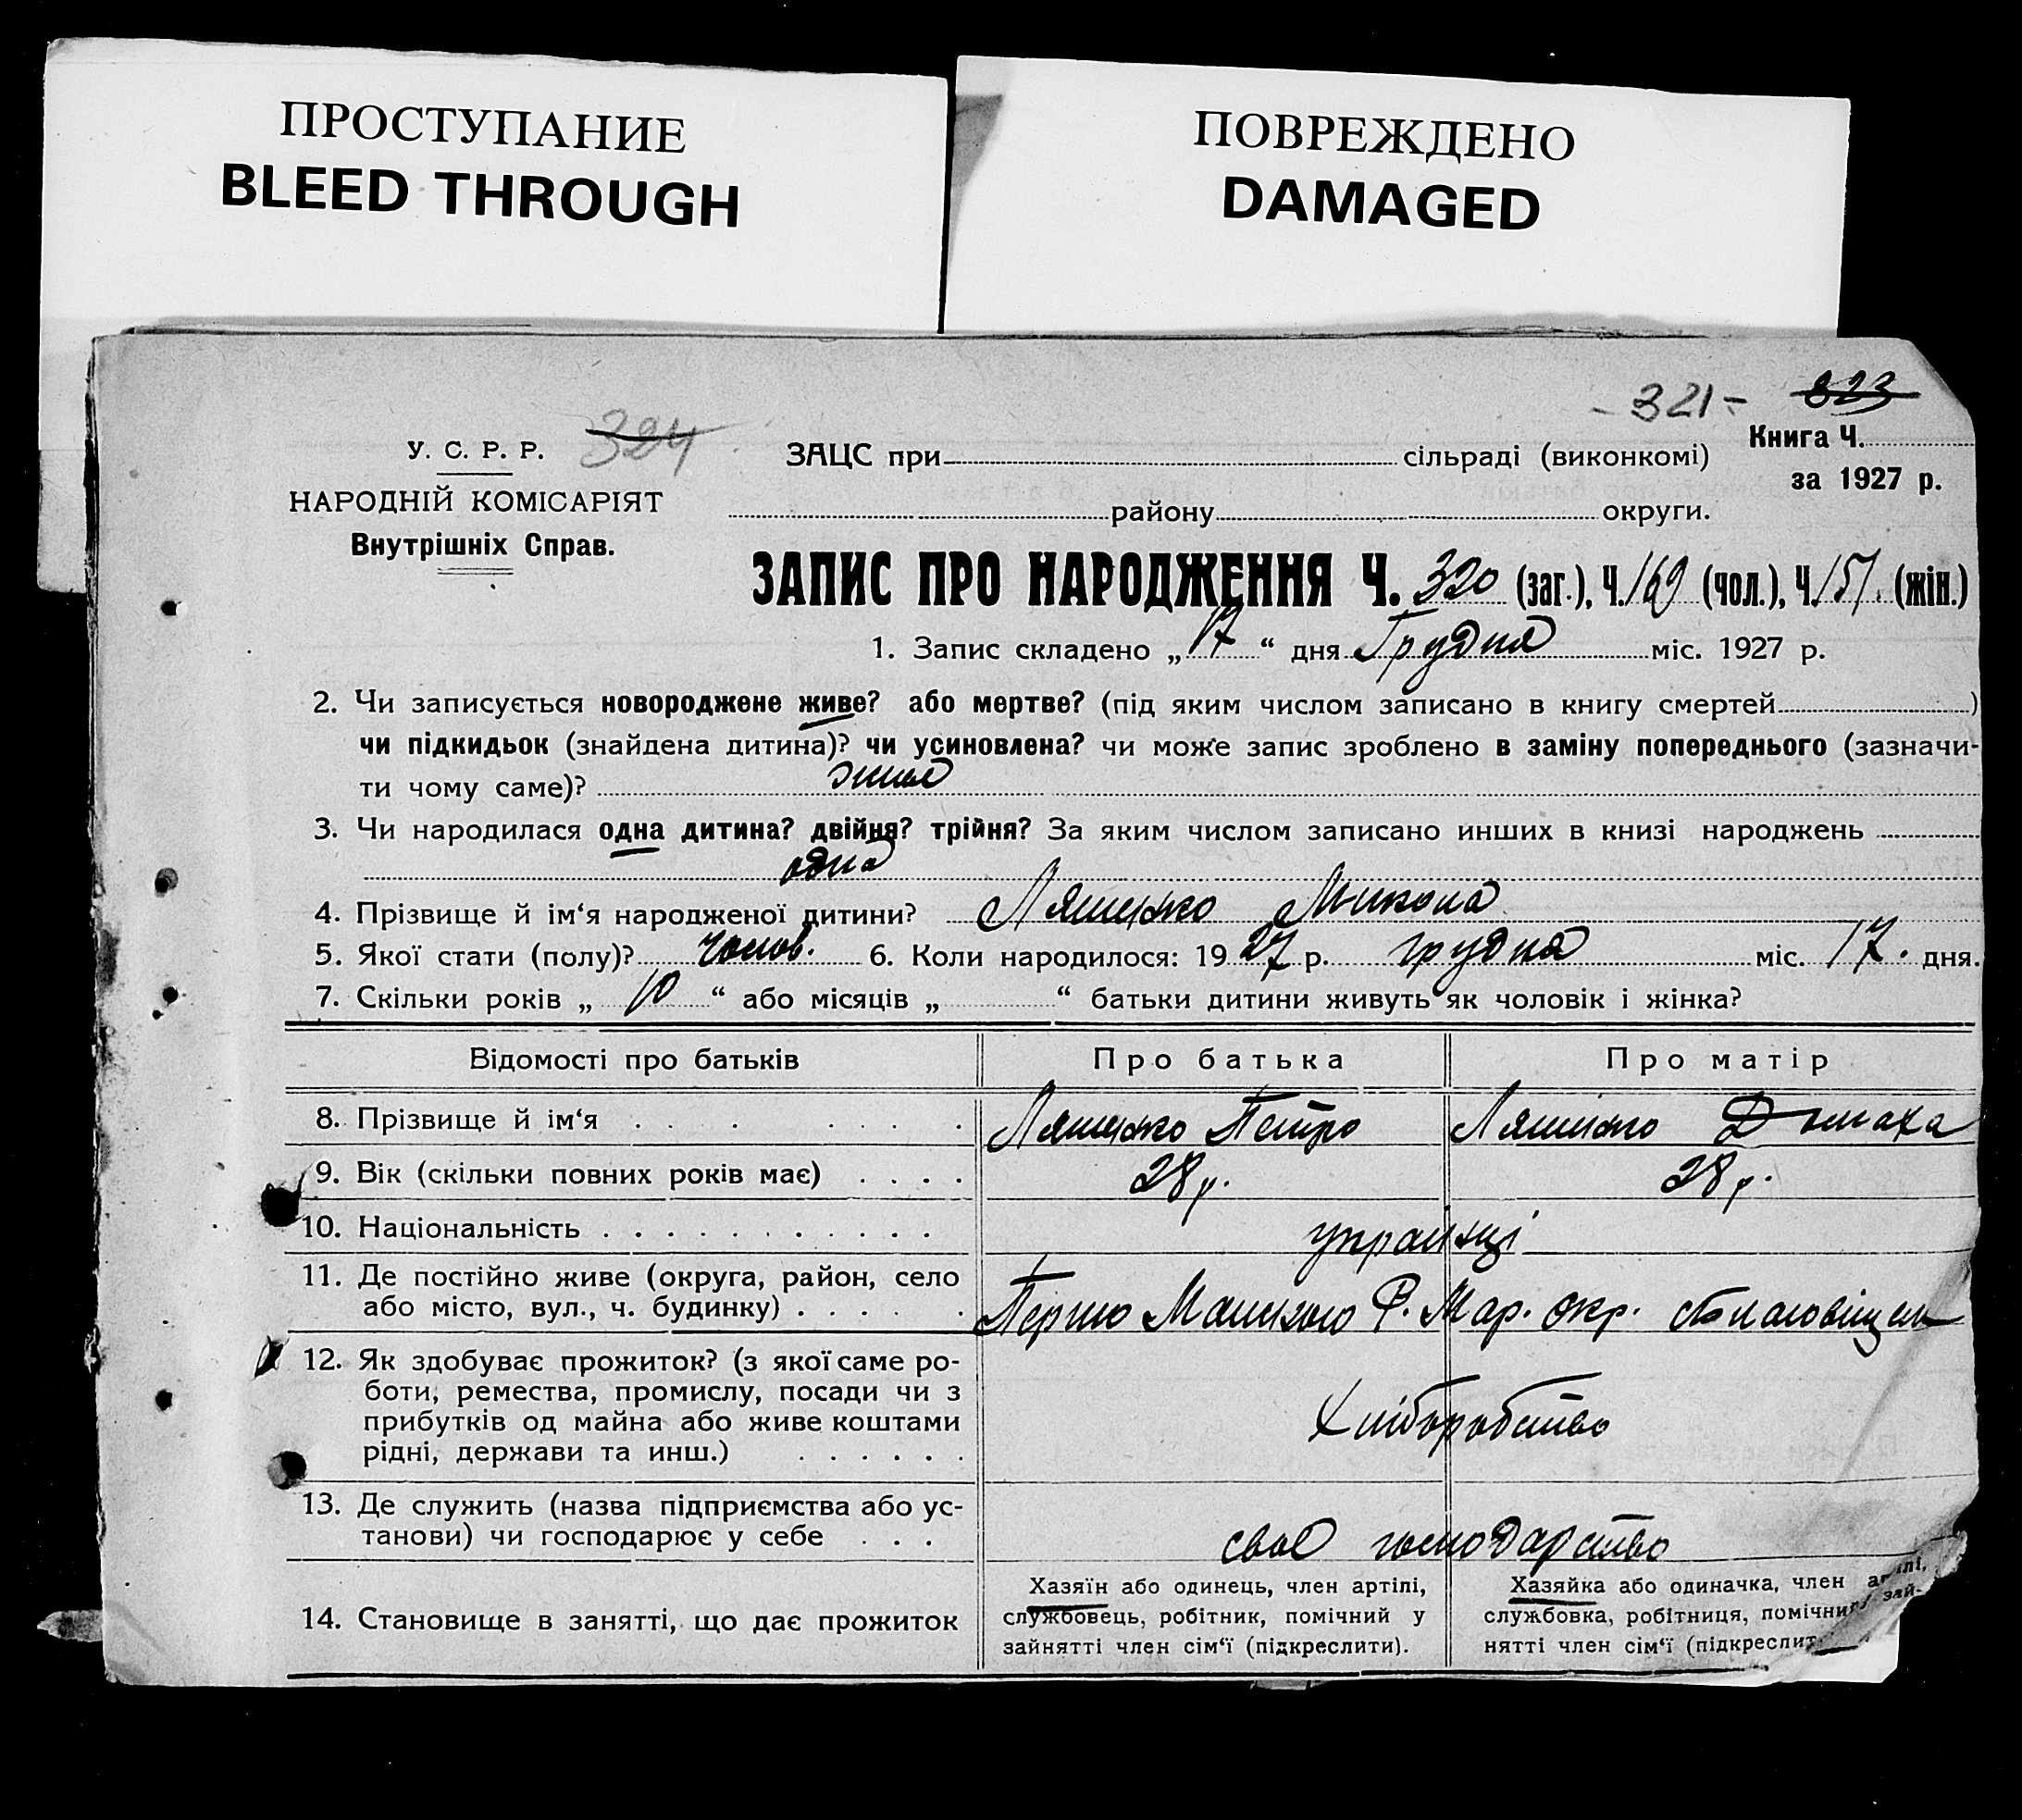 ПРОСТУПАНИЕ
BLEED THROUGH
ПОВРЕЖДЕНО
DAMAGED
- 321 - 323
У. С. Р. Р. 324
ЗАЦС при сільраді (виконкомі) Книга Ч.
за 1927 р.
НАРОДНІЙ КОМІСАРІЯТ
району округи.
Внутрішніх Справ.
ЗАПИС ПРО НАРОДЖЕННЯ Ч. 320 (заг.), Ч. 169 (чол.), Ч. 151. (жін.)
1. Запис складено „ 17 “ дня Грудня міс. 1927 р.
2. Чи записується новороджене живе? або мертве? (під яким числом записано в книгу смертей )
чи підкидьок (знайдена дитина)? чи усиновлена? чи може запис зроблено в заміну попереднього (зазначи-
ти чому саме)? живе
3. Чи народилася одна дитина? двійня? трійня? За яким числом записано инших в книзі народжень
одна
4. Прізвище й ім‘я народженої дитини? Ляшенко Микола
5. Якої стати (полу)? чолов. 6. Коли народилося: 19 27 р. грудня міс. 17. дня.
7. Скільки років „ 10 “ або місяців „ “ батьки дитини живуть як чоловік і жінка?
Відомості про батьків Про батька Про матір
8. Прізвище й ім‘я Ляшенко Петро Ляшенко Домаха
9. Вік (скільки повних років має) 28 р. 28 р.
10. Національність українці
11. Де постійно живе (округа, район, село
або місто, вул., ч. будинку) Першо Р. Мар. окр.
12. Як здобуває прожиток? (з якої саме ро-
боти, ремества, промислу, посади чи з
прибутків од майна або живе коштами
рідні, держави та инш.) Хліборобство
13. Де служить (назва підприємства або ус-
танови) чи господарює у себе своє господарство
14. Становище в занятті, що дає прожиток
Хазяїн або одинець, член артілі,
службовець, робітник, помічний у
зайнятті член сім‘ї (підкреслити).
Хазяйка або одиначка, член артілі,
службовка, робітниця, помічни зай-
нятті член сім‘ї (підкреслит